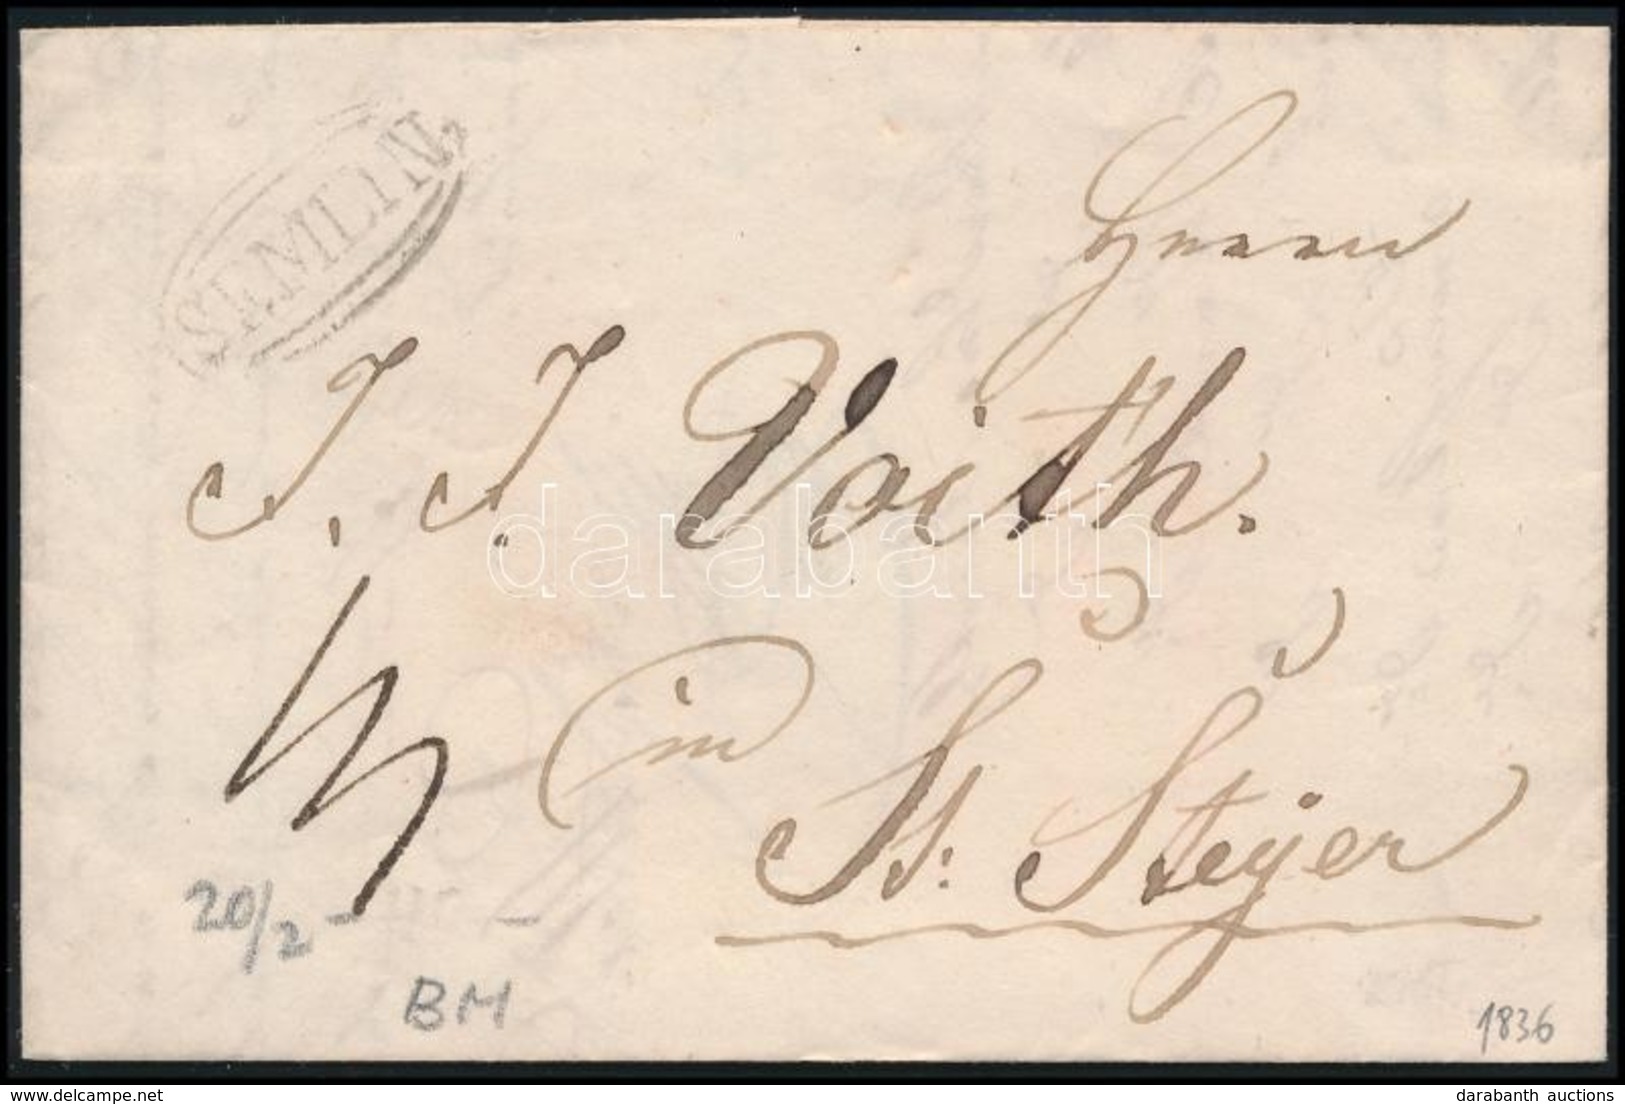 SEMLIN.
Herrn
J. J. Voith.
in
St. Steyer
20/2-
BM
1836
darabanth
delcampe.net
darabanth auctions